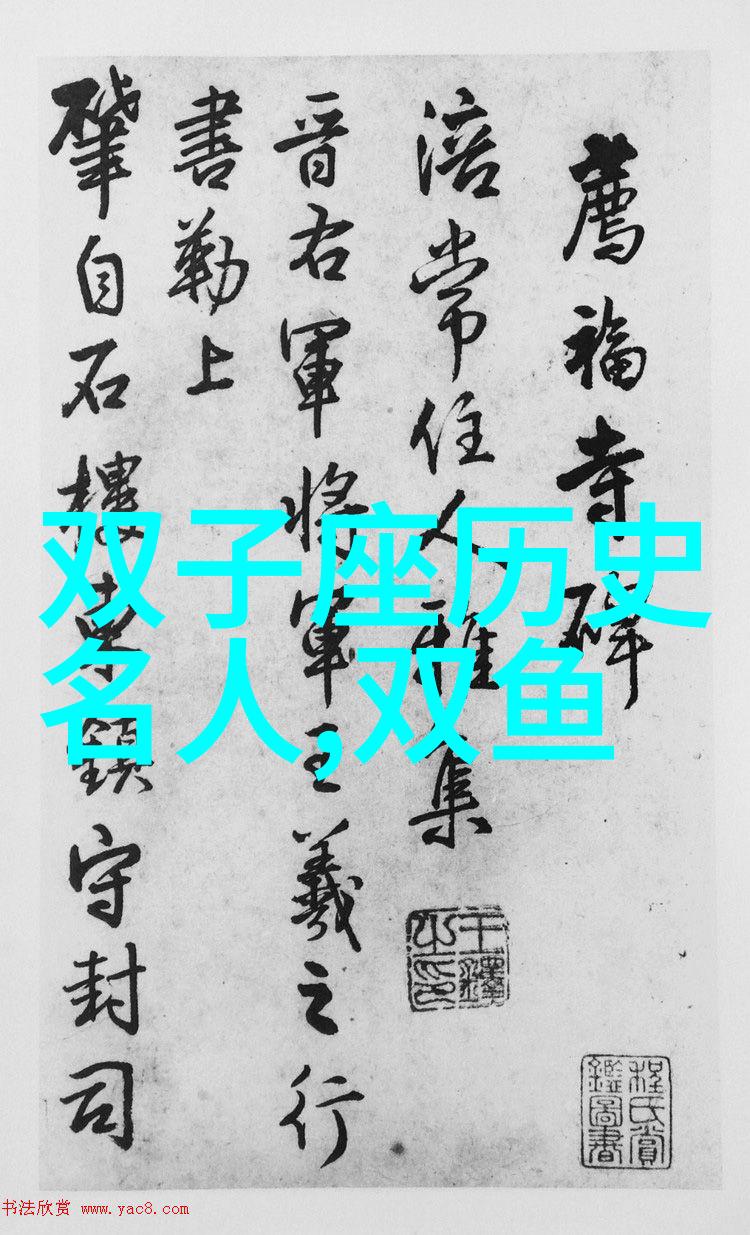 薦福寺碑
涪常住人雅集
晋右軍將軍王羲之行
書勒上
肇自石樓東鎮守封司
王鐸之印
程氏賞鑑圖書
双子座历史
名人,双鱼
书法欣赏 www.yac8.com